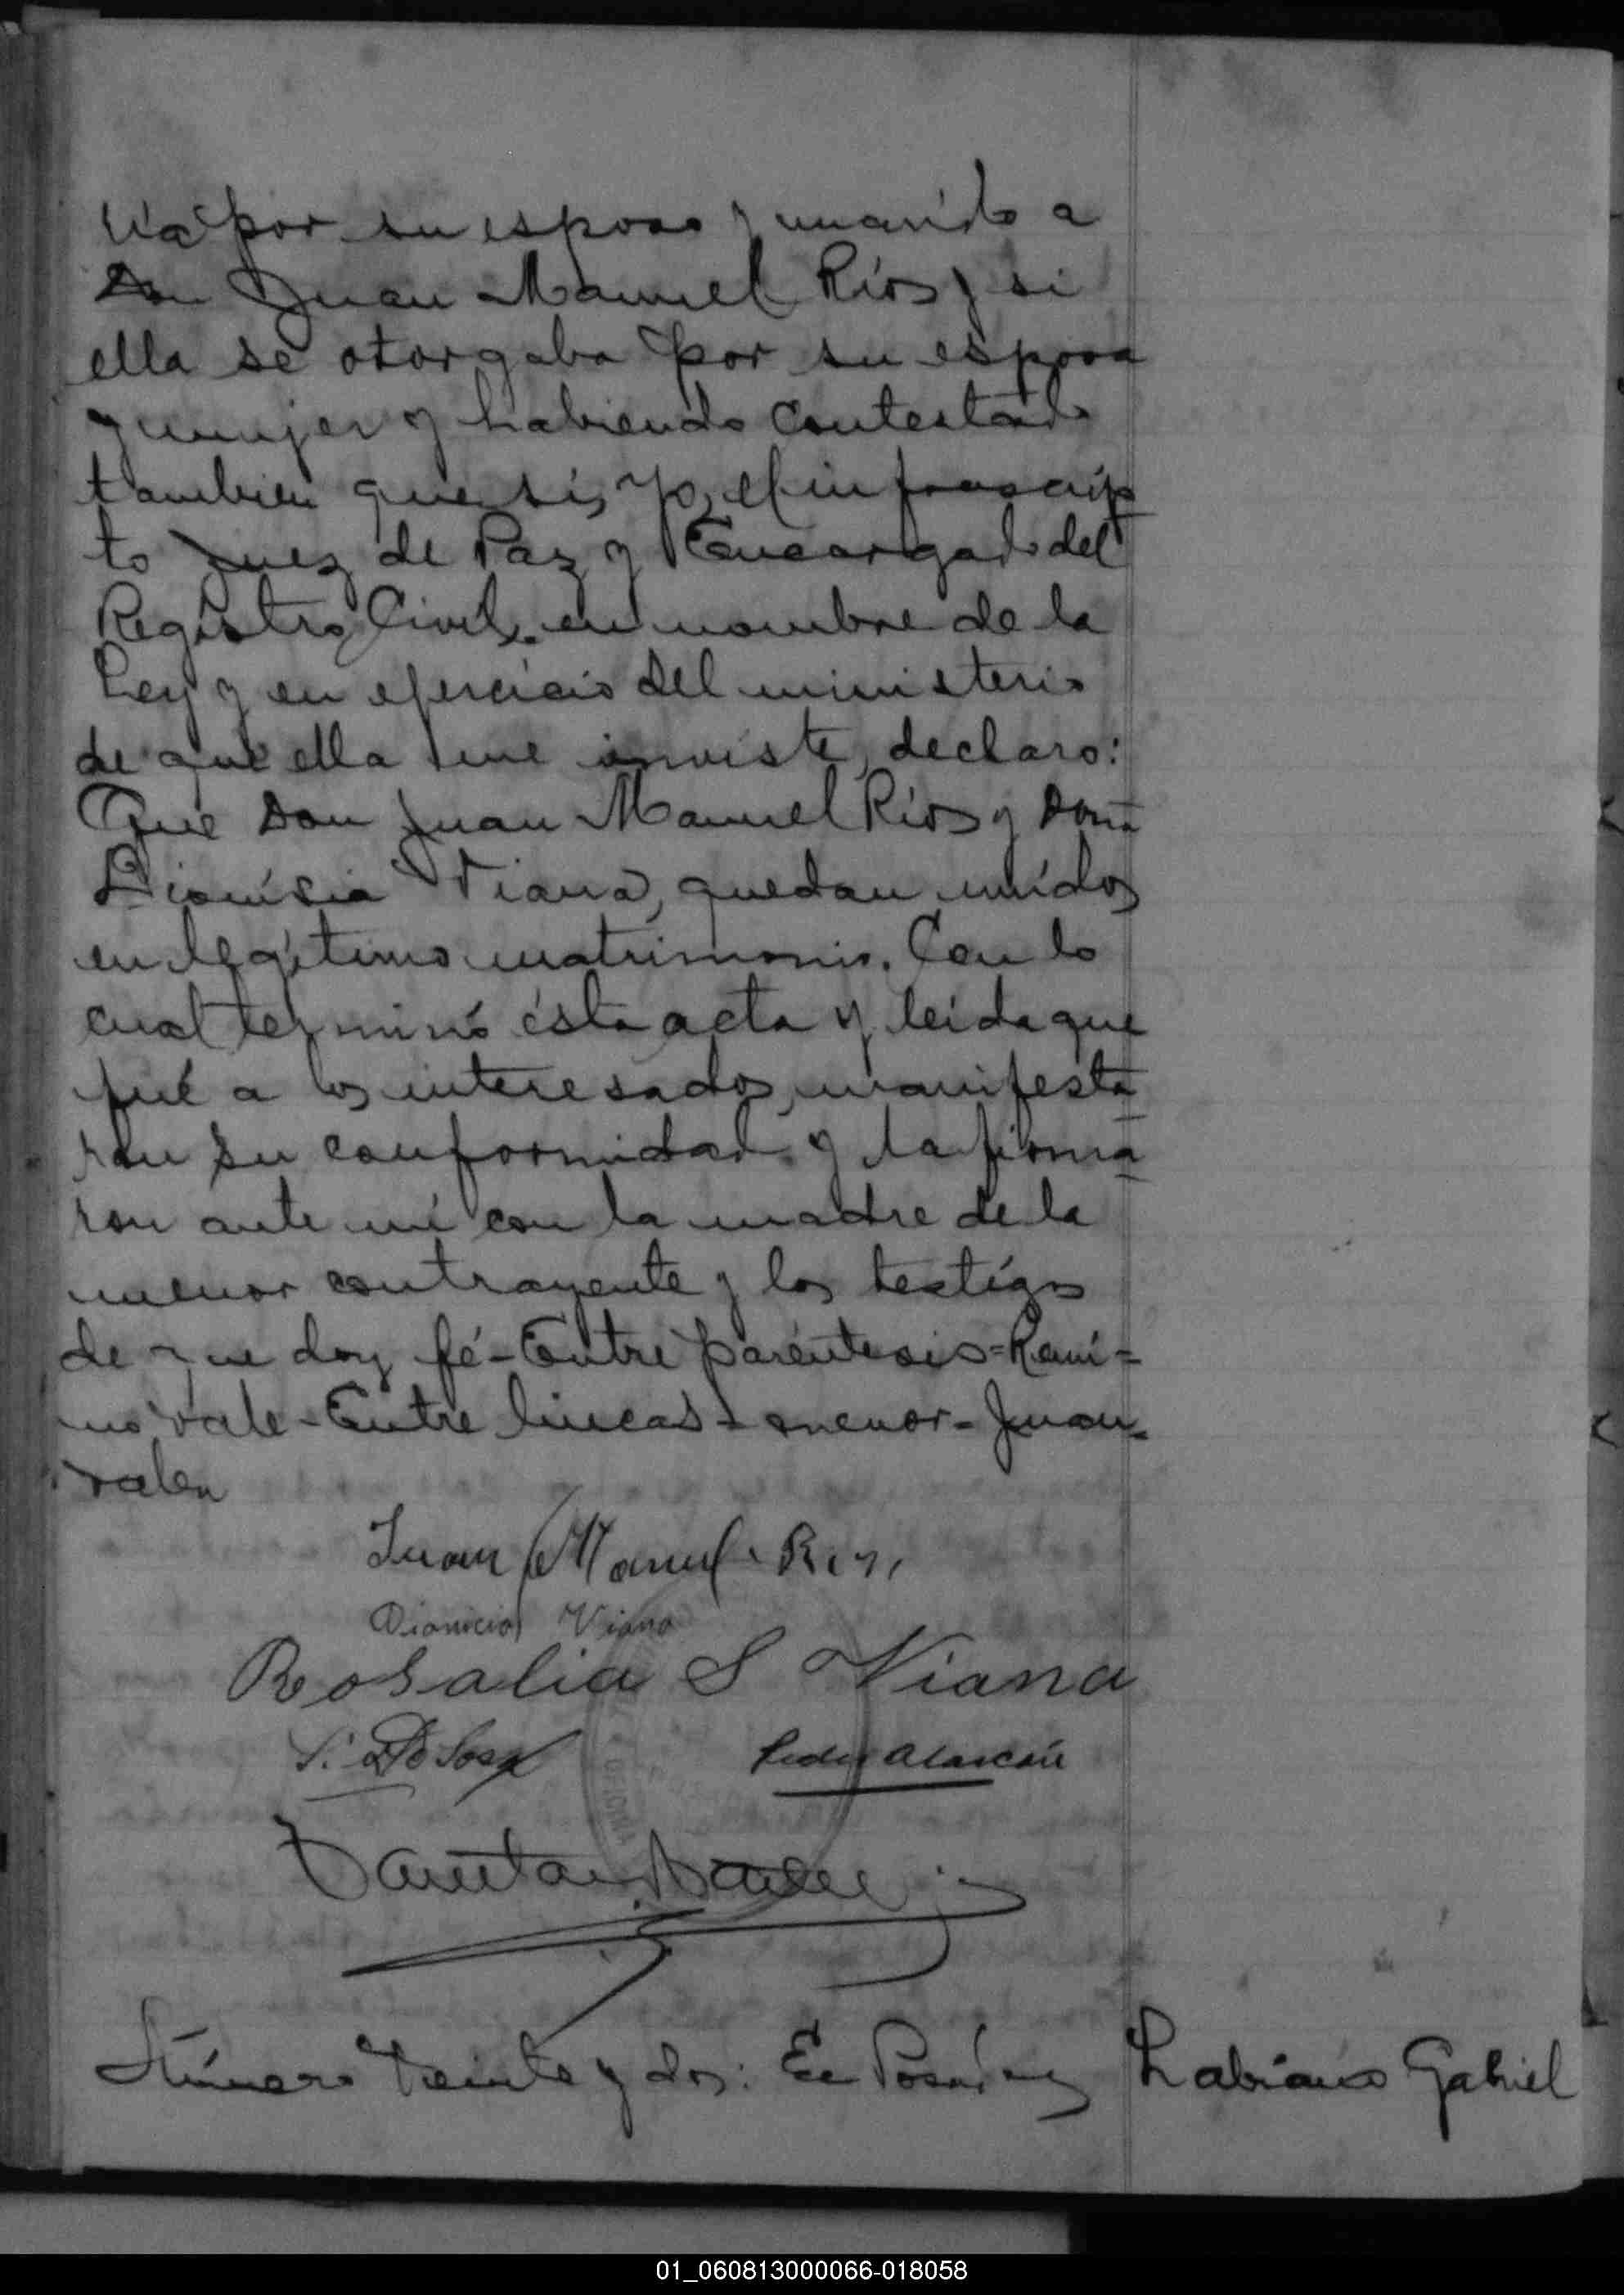 ría por su esposo y marido a
Don Juan Manuel Ríos y si
ella se otorgaba por su esposa
y mujer y habiendo contestado
tambien que si, Yo, el infrascrip
to Juez de Paz y Encargado del
Registro Civil, en nombre de la
Ley y en ejercicio del ministerio
de que ella me inviste, declaro:
Que Don Juan Manuel Ríos y Doña
Dionísia Viana, quedan unídos
en legítimo matrimonio. Con lo
cual terminó ésta acta y leida que
fué a los interesados, manifesta
ron su conformidad y la firma
ron ante mi con la madre de la
menor contrayente y los testígos
de que doy fé - Entre paréntesis = Rami =
no vale - Entre lineas - menor - Juan -
valen
Juan Manuel Rios
Dionicia Viana
Rosalia S Viana
Sosa Pedro Alarcón
Número Veinte y dos: En Posadas
Labiano Gabriel
OFICINA
01_060813000066-018058